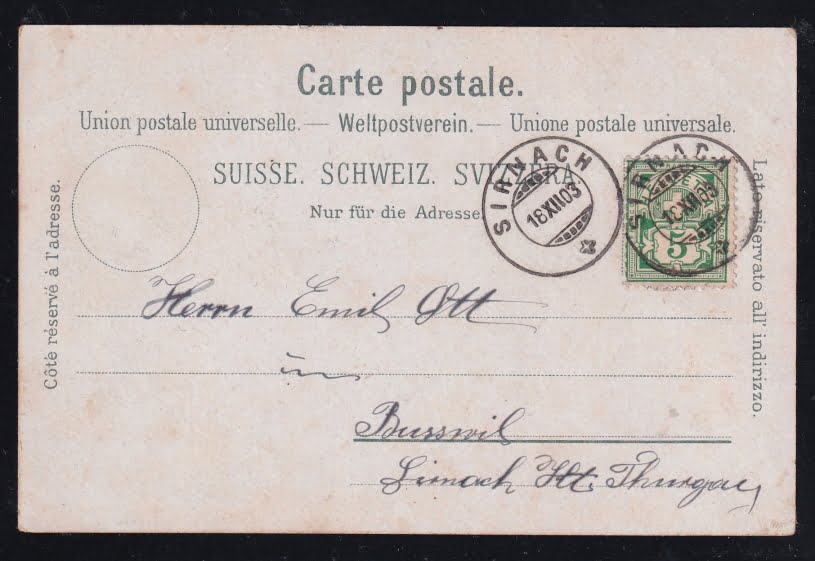 Carte postale.
Union postale universelle. — Weltpostverein. — Unione postale universale.
SUISSE. SCHWEIZ. SVIZZERA.
Nur für die Adresse.
Côté réservé à l'adresse.
Lato riservato all' indirizzo.
SIRNACH
18.XII.03
SIRNACH
18.XII.03
5
Herrn Emil Ott
in
Busswil
Sirnach Kt. Thurgau